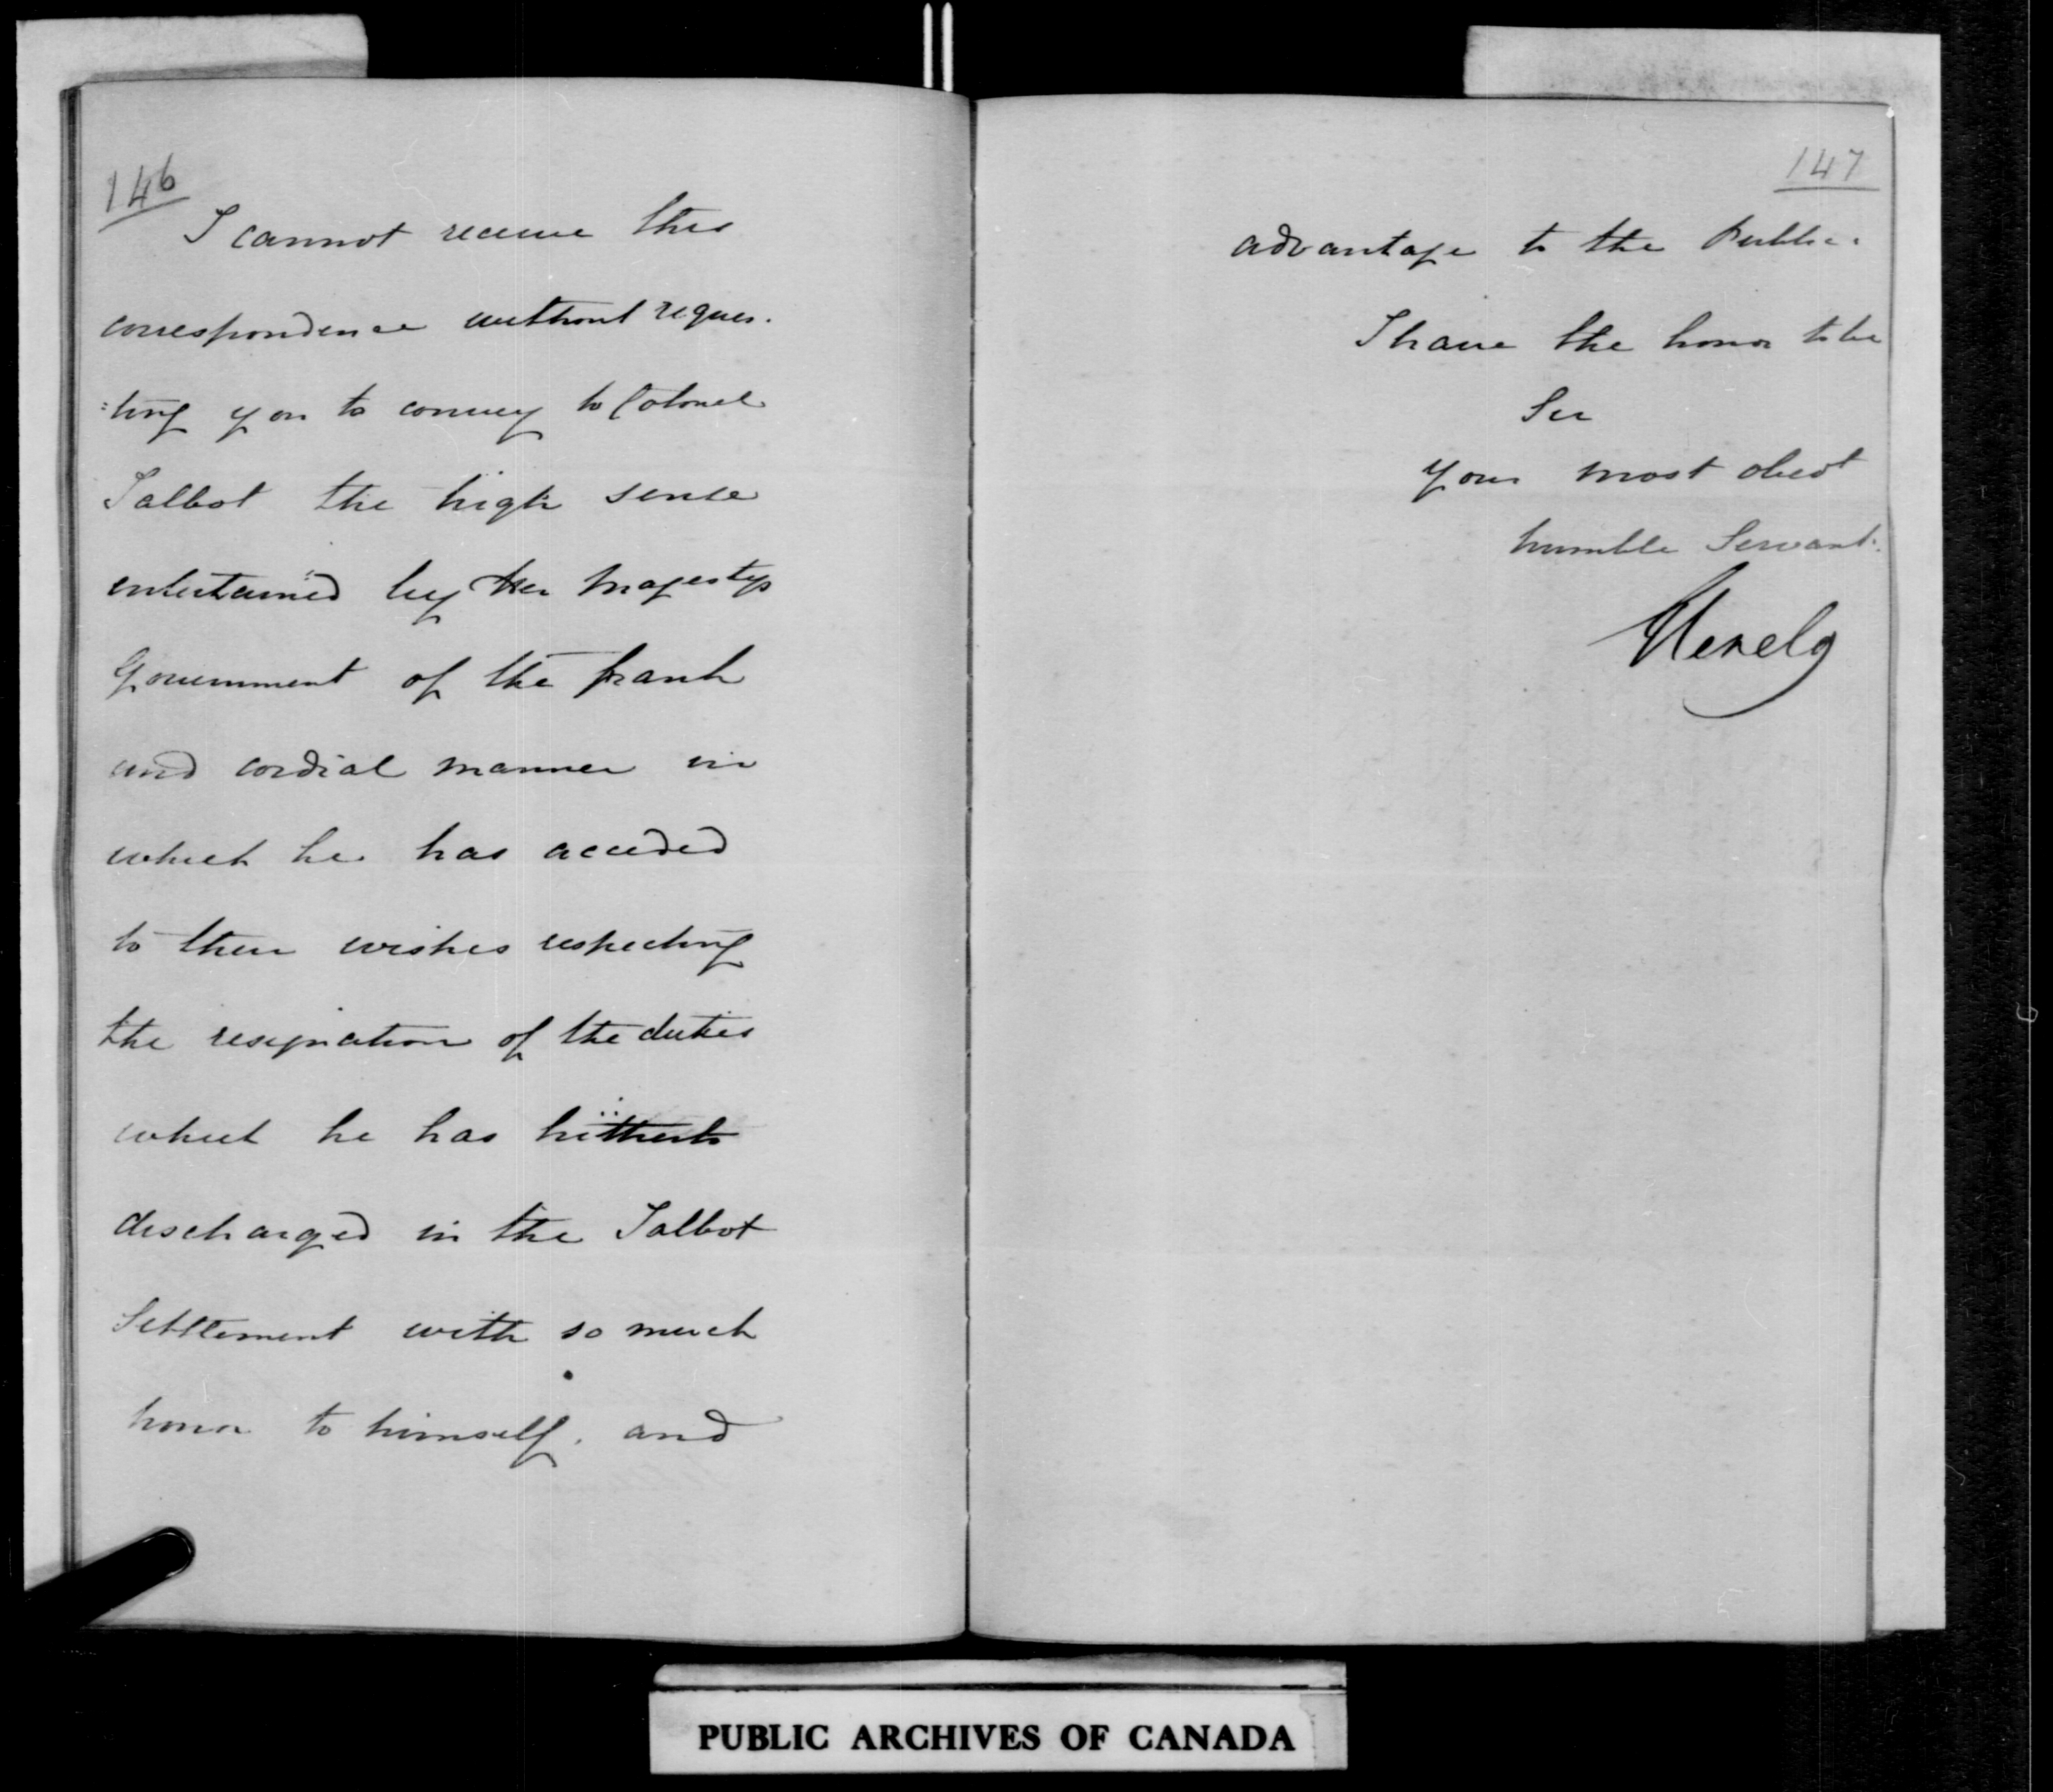 146
I cannot receive this
correspondence without reques-
:ting you to convey to Colonel
Talbot the high sense
entertained by Her Majesty's
Government of the frank
and cordial manner in
which he has acceded
to their wishes respecting
the resignation of the duties
which he has hitherto
discharged in the Talbot
Settlement with so much
honor to himself, and
147
advantage to the Public.
I have the honor to be
Sir
Your most obedt
humble Servant.
Glenelg
PUBLIC ARCHIVES OF CANADA
6